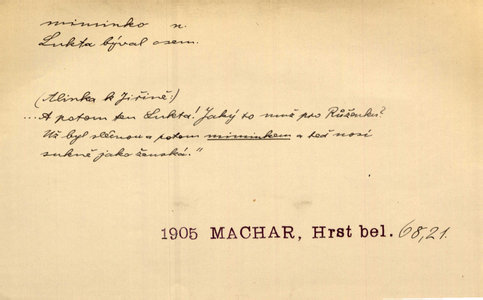 miminko n.
Lukta býval osem.
(Alinka k Jiřině:)
...A potom ten Lukta! Jaký to muž pro Růženku?
Už byl slčnou a potom miminkem a teď nosí
sukně jako ženská."
1905 MACHAR, Hrst bel. 68,21.